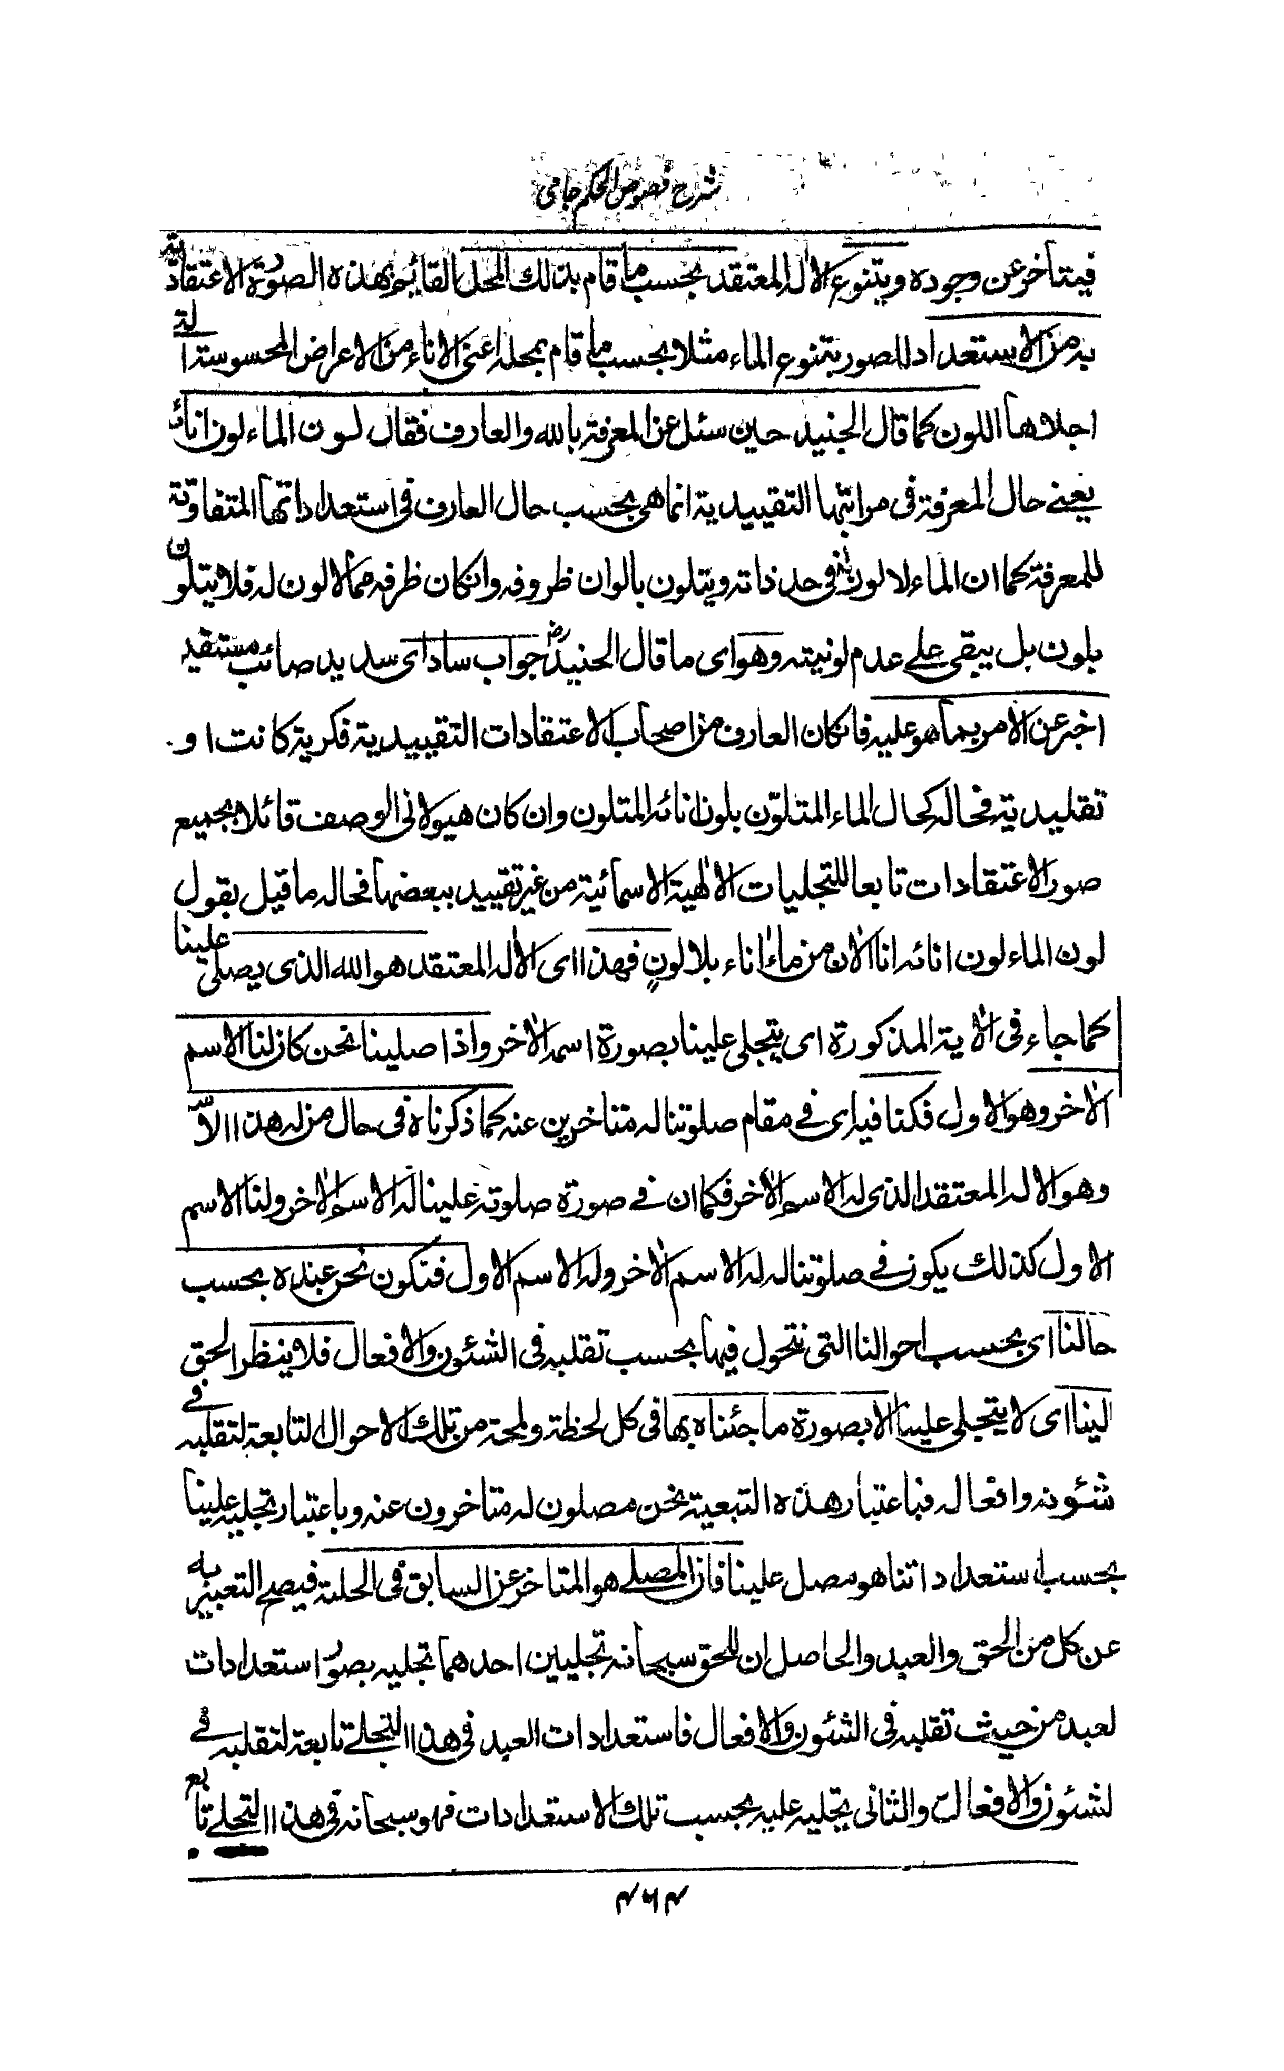 شرح فصوص الحكم جامى
فيتاخر عن وجوده ويتنوع الاله المعتقد بحسب ما قام بذلك المحل القائم بهذه الصورة الاعتقادية
من الاستعداد للصور بتنوع الماء مثلا بحسب ما قام بمحله اعنى الاناء من الاعراض المحسوسة التى
اجلاها اللون كما قال الجنيد حين سئل عن المعرفة بالله والعارف فقال لون الماء لون انائه
يعنے حال المعرفة فى مراتبها التقييدية انما هى بحسب حال العارف فى استعداداتها المتفاوتة
للمعرفة كما ان الماء لا لون له فى حد ذاته ويتلون بالوان ظروفه وان كان ظرفه مما لا لون له فلا يتلون
بلون بل يبقى علے عدم لونيته وهو اى ما قال الجنيد رض جواب ساد اى سديد صائب مستقيم
اخبر عن الامر بما هو عليه فان كان العارف من اصحاب الاعتقادات التقييدية فكرية كانت او
تقليدية فحاله كحال الماء المتلوّن بلون انائه المتلون وان كان هيولانى الوصف قائلا بجميع
صور الاعتقادات تابعا للتجليات الالهية الاسمائية من غير تقييد ببعضها فحاله ما قيل بقول
لون الماء لون انائه انا الان من ماء اناء بلا لونٍ فهذا اى الاله المعتقد هو الله الذى يصلى علينا
كما جاء فى الاية المذكورة اى يتجلى علينا بصورة اسمه الاخر واذا صلينا نحن كان لنا الاسم
الاخر وهو الاول فكنا فيه اى فے مقام صلوتنا له متاخرين عنه كما ذكرناه فى حال من له هذا الاسم
وهو الاله المعتقد الذى له الاسم الاخر فكما ان فے صورة صلوته علينا له الاسم الاخر ولنا الاسم
الاول كذلك يكون فے صلوتنا له له الاسم الاخر وله الاسم الاول فنكون نحن عبنده بحسب
حالنا اى بحسب احوالنا التى نتحول فيها بحسب تقلبه فى الشئون والافعال فلا ينظر الحق
لينا اى لا يتجلى علينا الا بصورة ما جئناه بها فى كل لحظة ولمحة من تلك الاحوال التابعة لتقلبه فے
شئونه وافعاله فباعتبار هذه التبعية نحن مصلون له متاخرون عنه وباعتبار تجليه علينا
بحسب استعداداتنا هو مصل علينا فان المصلے هو المتاخر عن السابق فى الحلبة فيصح التعبير به
عن كل من الحق والعبد والحاصل ان للحق سبحانه تجليين احدهما تجليه بصور استعدادات
لعبد من حيث تقلبه فى الشئون والافعال فاستعدادات العبد فى هذا التجلے تابعة لتقلبه فے
لشئون والافعال والثانى تجليه عليه بحسب تلك الاستعدادات فهو سبحانه فى هذا التجلے تابع